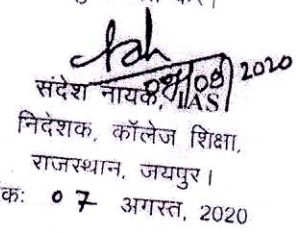 संदेश नायक, IAS
निदेशक, कॉलेज शिक्षा,
राजस्थान, जयपुर।
कः 07 अगस्त, 2020